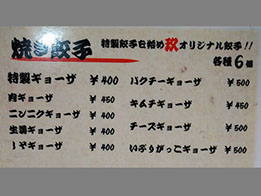 焼き餃子
特製餃子を始め 玖オリジナル餃子!!
各種6個
特製ギョーザ ¥400
肉ギョーザ ¥450
ニンニクギョーザ ¥400
生姜ギョーザ ¥400
しそギョーザ ¥400
パクチーギョーザ ¥500
キムチギョーザ ¥450
チーズギョーザ ¥500
いぶりがっこギョーザ ¥500